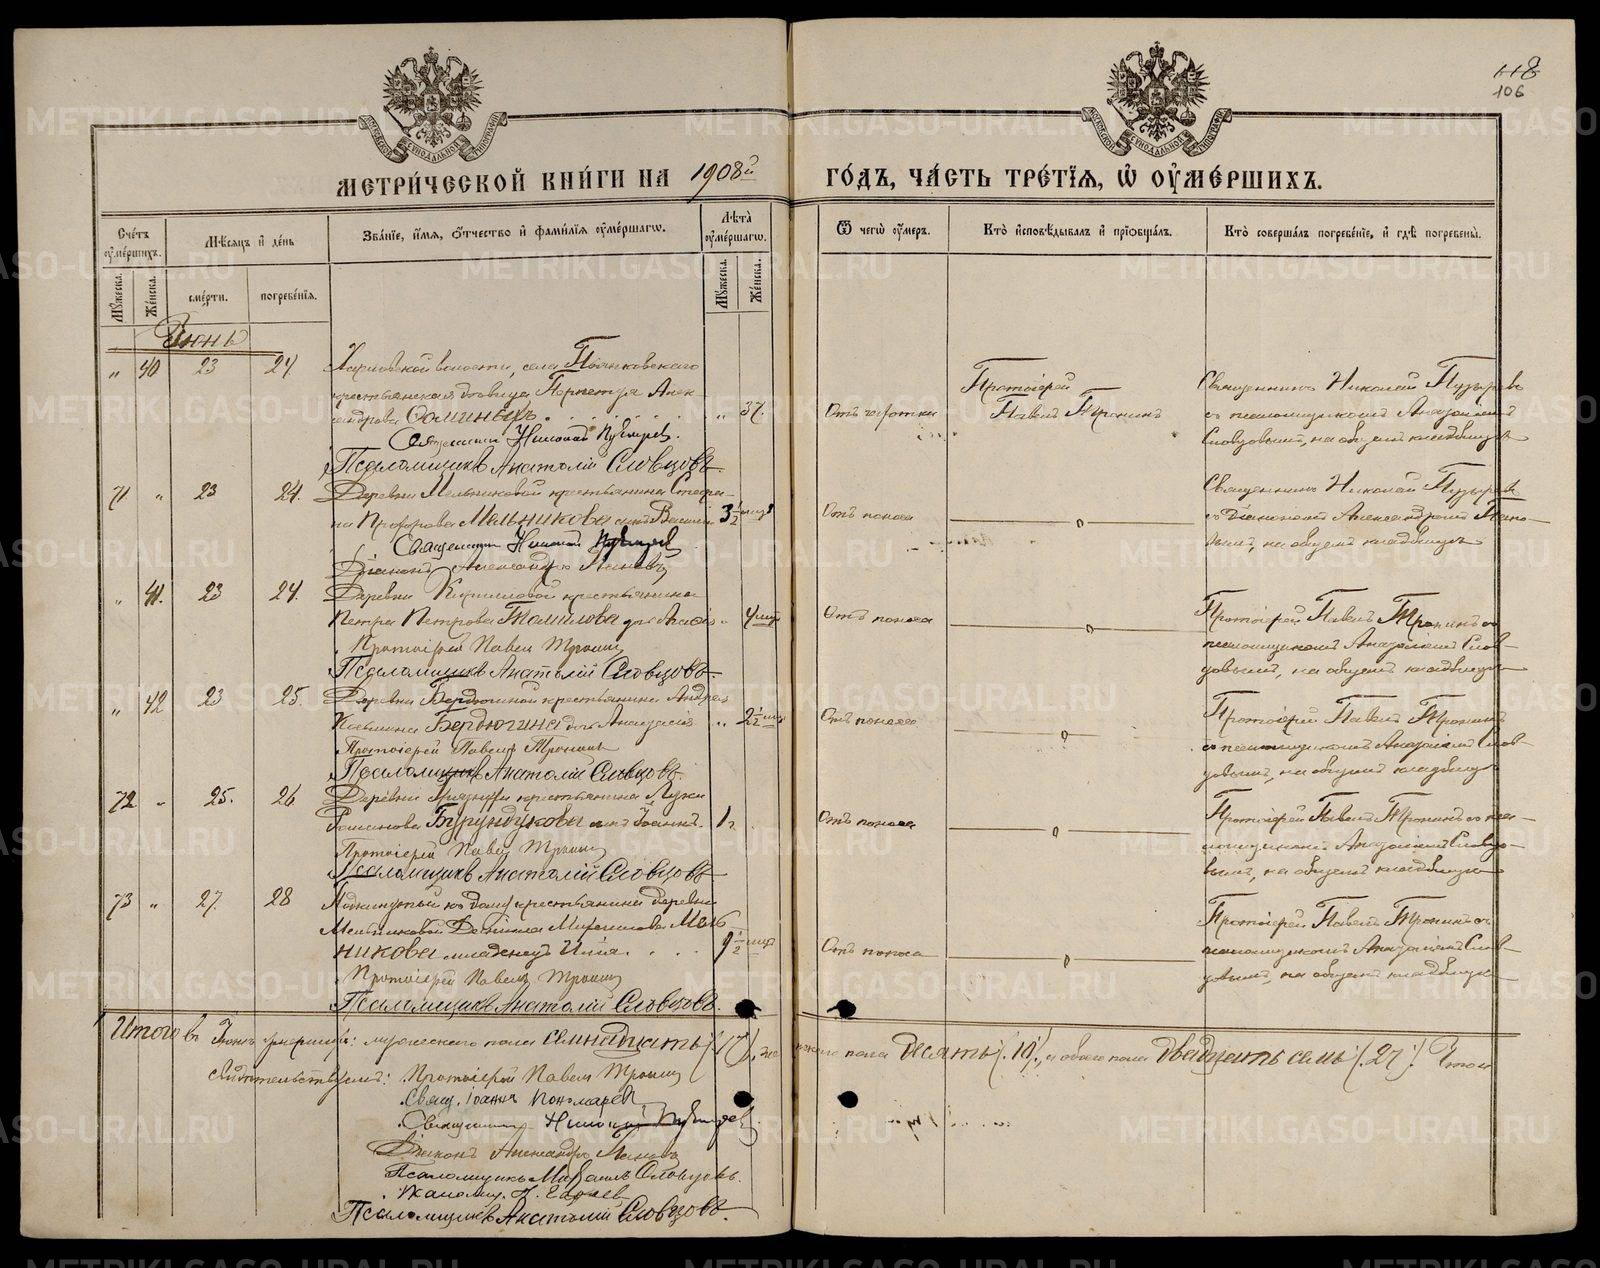 118
106
МЕТРИ́ЧЕСКОЙ КНИ́ГИ НА 1908й ГО́ДЪ, ЧА́СТЬ ТРЕ́ТІѦ, Ѡ ОУМЕ́РШИХЪ.
Сче́тъ оумершихъ.
Мѣсяцъ и де́нь
Зва́ніе, и́мѧ, о́тчество и фами́лія оуме́ршагѡ.
Лѣта̀ оуме́ршагѡ.
Ѿ чегѡ̀ оу́меръ.
Кто̀ исповѣ́дывалъ и пріѡбща́лъ.
Кто̀ соверша́лъ погребе́ніе, и гдѣ̀ погребены̀.
Мꙋжеска.
Же́нска.
сме́рти.
погребе́нія.
Мꙋжеска.
Же́нска.
Іюнь
„ 40 23 24
волости, села Пьянковскаго
крестьянская вдовица Перпетуя Алек
сандрова Соминыхъ „ 37.
Священникъ Николай Пузыревъ.
Псаломщикъ Анатолій Словцовъ
Отъ чахотки
Протоіерей
Павелъ Тронинъ
Священникъ Николай Пузыревъ
съ псаломщикомъ Анатоліемъ
Словцовымъ, на общемъ кладбищѣ
71 „ 23 24.
Деревни Мельниковой крестьянина Стефа-
на Прохорова Мельникова сынъ Василій 3½ мца
Священникъ Николай Пузыревъ
Діаконъ Александръ
Отъ поноса
Священникъ Николай Пузыревъ
съ Діакономъ Александромъ
вымъ, на общемъ кладбищѣ
„ 41. 23 24.
Деревни крестьянина
Петра Петрова Томилова дочь „ 4 мца
Протоіерей Павелъ Тронинъ
Псаломщикъ Анатолій Словцовъ
Отъ поноса
Протоіерей Павелъ Тронинъ съ
псаломщикомъ Анатоліемъ Слов-
цовымъ, на общемъ кладбищѣ
„ 42 23 25.
Деревни Бердюгиной крестьянина Андрея
Бердюгина дочь Анастасія „ 2½ мца
Протоіерей Павелъ Тронинъ
Псаломщикъ Анатолій Словцовъ.
Отъ поноса
Протоіерей Павелъ Тронинъ
съ псаломщикомъ Анатоліемъ Слов-
цовымъ, на общемъ кладбищѣ
72 „ 25. 26
Деревни крестьянина Луки
Романова Бурундукова сынъ Іоаннъ. 1 г.
Протоіерей Павелъ Тронинъ
Псаломщикъ Анатолій Словцовъ
Отъ поноса
Протоіерей Павелъ Тронинъ съ пса-
ломщикомъ Анатоліемъ Словцо-
вымъ, на общемъ кладбищѣ
73 „ 27. 28
Подкинутый къ дому крестьянина деревни
Мельниковой Даніила Мель
никова младенецъ Илія. 9½ мца
Протоіерей Павелъ Тронинъ
Псаломщикъ Анатолій Словцовъ.
Отъ поноса
Протоіерей Павелъ Тронинъ съ
псаломщикомъ Анатоліемъ Слов-
цовымъ, на общемъ кладбищѣ
Итого въ Іюнѣ умершихъ: мужескаго пола семнадцать (17), женскаго пола десять (.10.), а обоего пола двадцать семь (.27.). Въ томъ
свидѣтельствуемъ: Протоіерей Павелъ Тронинъ
Свящ. Іоаннъ Пономаревъ
Священникъ Николай Пузыревъ
Діаконъ Александръ
Псаломщикъ Михаилъ Словцовъ.
Псаломщикъ Анатолій Словцовъ.
METRIKI.GASO-URAL.RU